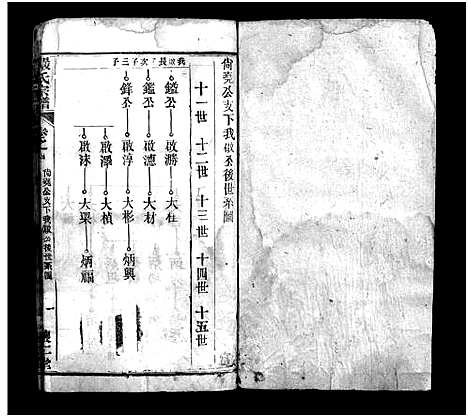 尚堯公支下我啟公後世系圖
十一世 十二世 十三世 十四世 十五世
我啟長子次子三子
鎰公 啟勝 大在
鑑公 啟德 大材
鋒公 啟淳 大彬 炳興
啟澤 大楨
啟沫 大杲 炳福
嚴氏宗譜
卷之
尚堯公支下我啟公後世系圖
一